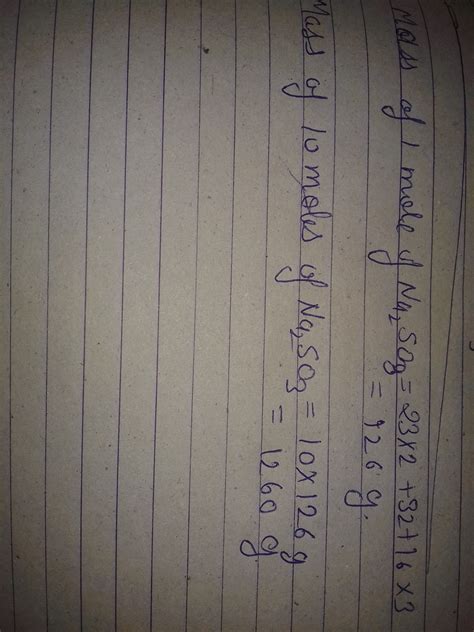 Mass of 1 mole of Na₂SO₃ = 23×2 + 32 + 16 × 3
= 126 g.
Mass of 10 moles of Na₂SO₃ = 10×126 g
= 1260 g